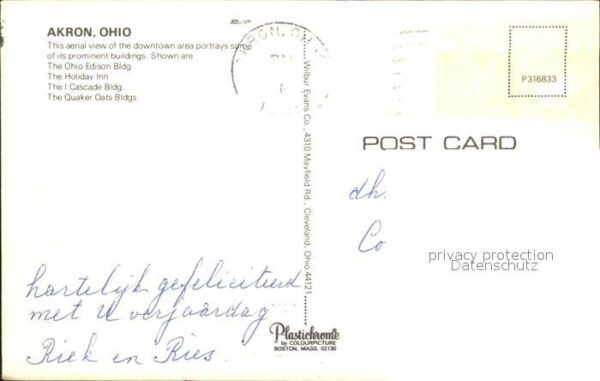 AKRON, OHIO
This aerial view of the downtown area portrays some
of its prominent buildings. Shown are
The Ohio Edison Bldg.
The Holiday Inn
The I Cascade Bldg.
The Quaker Oats Bldgs.
AKRON, OH
PM
P316833
Wilbur Evans Co., 4310 Mayfield Rd., Cleveland, Ohio 44121
POST CARD
dh.
Co
privacy protection
Datenschutz
hartelijk gefeliciteerd
met U verjaardag
Riek en Ries.
Plastichrome
by COLOURPICTURE
BOSTON, MASS. 02130